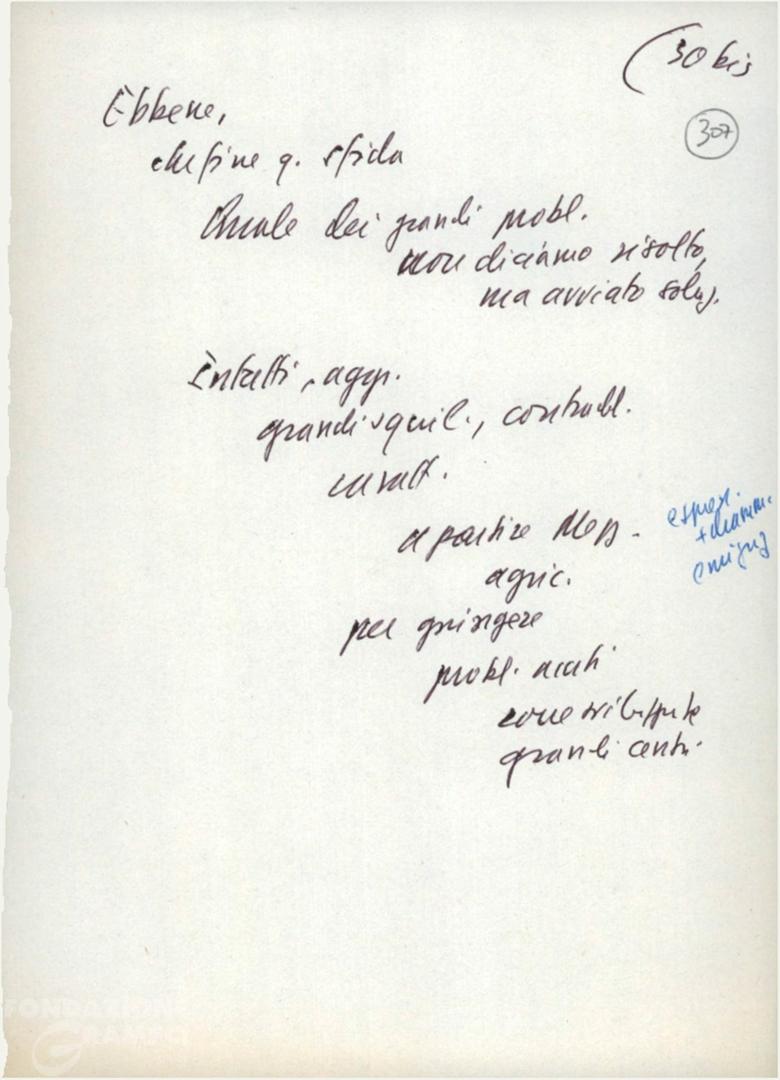 (30 bis
307
Ebbene,
che fine q. sfida
Quale dei grandi probl.
non diciamo risolto,
ma avviato soluz.
Infatti, aggr.
grandi squil., contradd.
a partire Mezz.
agric.
per giungere
probl. acuti
zone sviluppate
grandi centri
espress.
+ dramm.
emigraz
FONDAZIONE
GRAMSCI